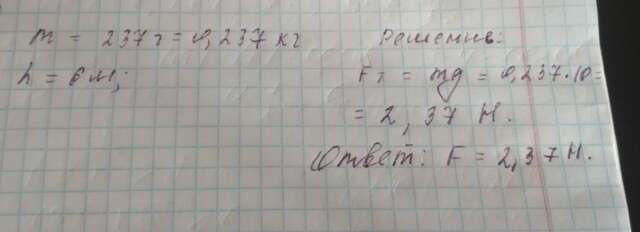 m = 237 г = 0,237 кг
h = 6 м;
Решение:
Fт = mg = 0,237·10 =
= 2,37 Н.
Ответ: F = 2,37 Н.